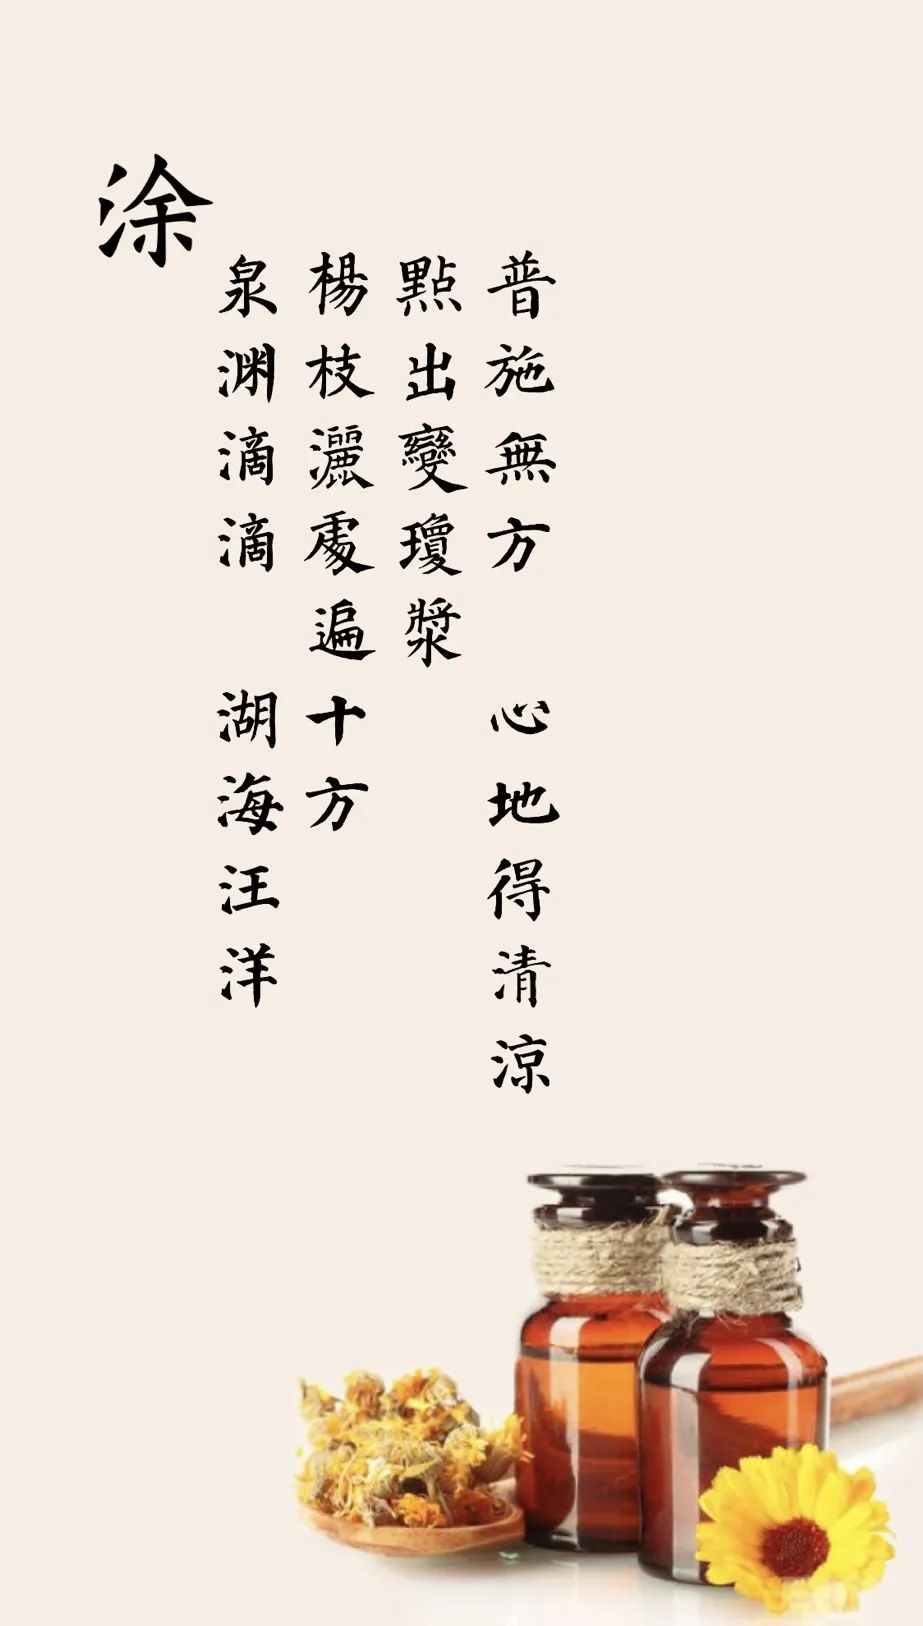 涂
泉渊滴滴 湖海汪洋
楊枝灑處遍十方
點出變瓊漿
普施無方 心地得清涼